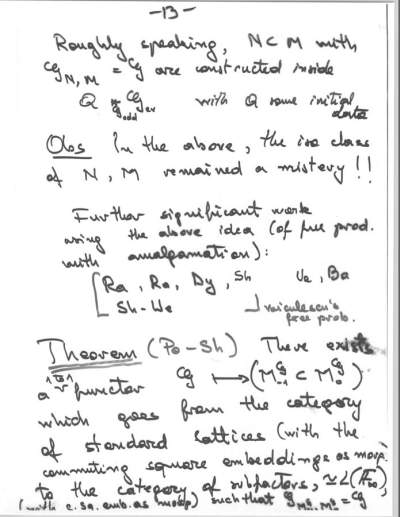 -13-
Roughly speaking, N⊂M with
𝒢_{N,M} = 𝒢 are constructed inside
Q *_{𝒢_{odd}} 𝒢_{ev} with Q some initial
data
Obs In the above, the iso class
of N, M remained a mistery!!
Further significant work
using the above idea (of free prod.
with amalgamation):
Ra, Ro, Dy, Sh Ue, Ba
Sh-We voiculescu's
free prob.
Theorem (Po-Sh) There exists
a functor 𝒢 ⟼ (M_{-1}^𝒢 ⊂ M_0^𝒢)
which goes from the category
of standard lattices (with the
commuting square embeddings as morp.
to the category of subfactors, ≃ L(F_∞),
(with c.sq. emb. as morp) such that 𝒢 = 𝒢